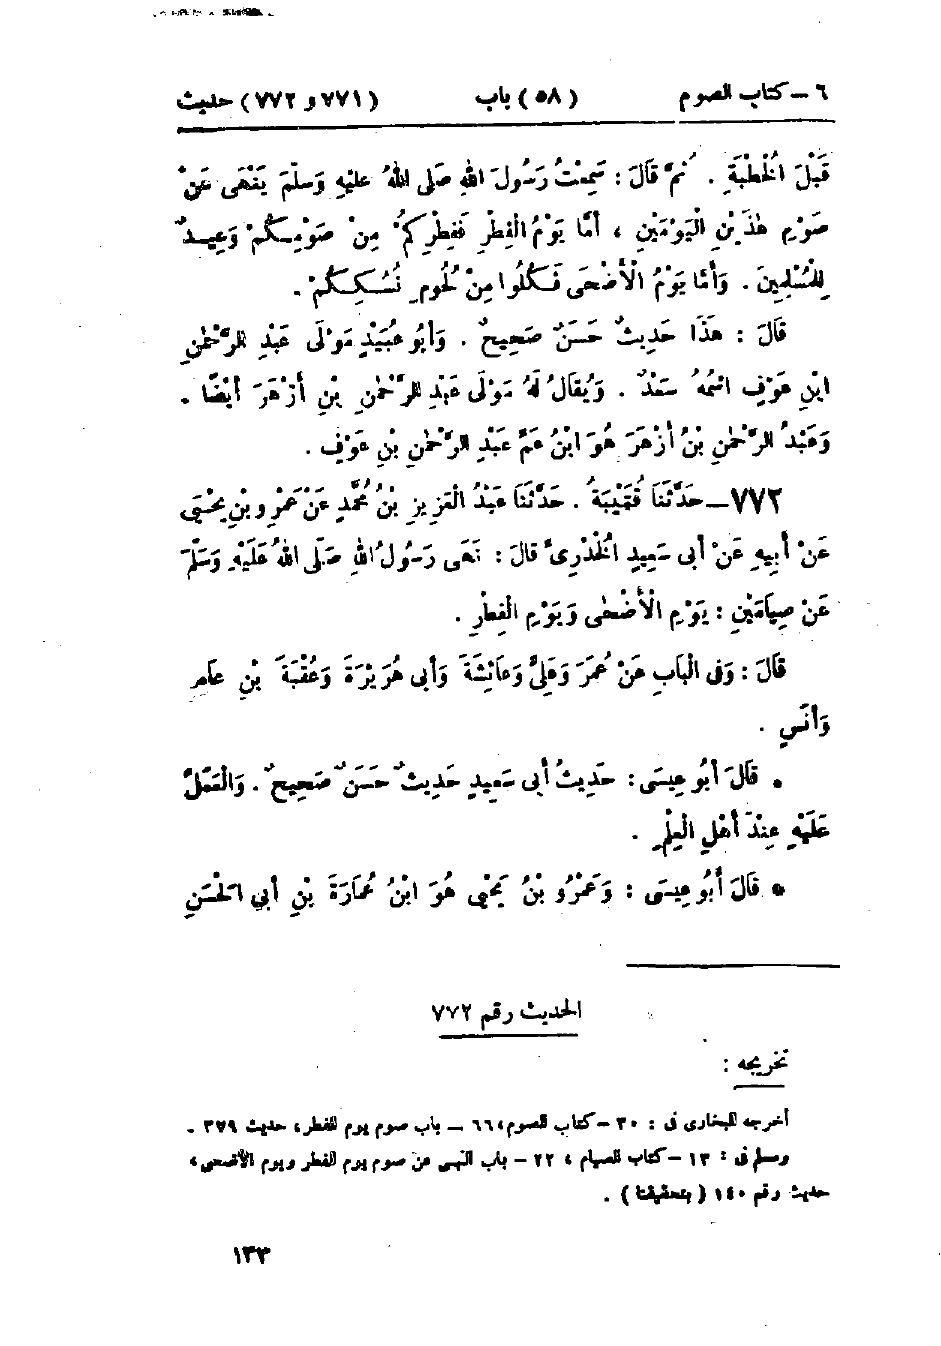 ٦ - كتاب الصوم (٥٨) باب (٧٧١ و ٧٧٢) حديث
قَبْلَ الْخُطْبَةِ . ثُمَّ قَالَ : سَمِعْتُ رَسُولَ اللهِ صَلَى اللهُ عليْهِ وَسَلَّمَ يَنْهَى عَنْ
صَوْمِ هٰذَيْنِ الْيَوْمَيْنِ ، أمَّا يَوْمُ الْفِطْرِ فَفِطْرُكُمْ مِنْ صَوْمِكُمْ وَعِيدٌ
لِلْمُسْلِمِينَ . وَأمَّا يَوْمُ الْأَضْحَى فَكُلُوا مِنْ لُحُومِ نُسُكِكُمْ .
قَالَ : هَذَا حَدِيثٌ حَسَنٌ صَحِيحٌ . وَأبُو عُبَيْدٍ مَوْلَى عَبْدِ الرَّحْمٰنِ
ابْنِ عَوْفٍ اسْمُهُ سَعْدٌ . وَيُقَالُ لَهُ مَوْلَى عَبْدِ الرَّحْمٰنِ بْنِ أزْهَرَ أيْضًا .
وَعَبْدُ الرَّحْمٰنِ بْنُ أزْهَرَ هُوَ ابْنُ عَمِّ عَبْدِ الرَّحْمٰنِ بْنِ عَوْفٍ .
٧٧٢ - حَدَّثَنَا قُتَيْبَةُ . حَدَّثَنَا عَبْدُ الْعَزِيزِ بْنُ مُحَمَّدٍ عَنْ عَمْرِو بْنِ يَحْيَى
عَنْ أبِيهِ عَنْ أبى سَعِيدٍ الْخُدْرِىِّ قالَ : نَهَى رَسُولُ اللهِ صَلَّى اللهُ عَلَيْهِ وَسَلَّمَ
عَنْ صِيَامَيْنِ : يَوْمِ الْأَضْحٰى وَيَوْمِ الْفِطْرِ .
قَالَ : وَفى الْبَابِ عَنْ عُمَرَ وَعَلِىٍّ وَعَائِشَةَ وَأبى هُرَيْرَةَ وَعُقْبَةَ بْنِ عامِرٍ
وَأنَسٍ .
• قَالَ أبُو عِيسَى : حَدِيثُ أبى سَعِيدٍ حَدِيثٌ حَسَنٌ صَحِيحٌ . وَالْعَمَلُ
عَلَيْهِ عِنْدَ أهْلِ الْعِلْمِ .
• قَالَ أَبُو عِيسَى : وَعَمْرُو بْنُ يَحْيَى هُوَ ابْنُ عُمَارَةَ بْنِ أبي الْحَسَنِ
الحديث رقم ٧٧٢
تخريجه :
أخرجه البخارى فى : ٣٠ - كتاب الصوم، ٦٦ - باب صوم يوم الفطر، حديث ٣٧٩ .
ومسلم فى : ١٣ - كتاب الصيام ، ٢٢ - باب النهى عن صوم يوم الفطر ويوم الأضحى ،
حديث رقم ١٤٠ ( بتحقيقنا ) .
١٣٣